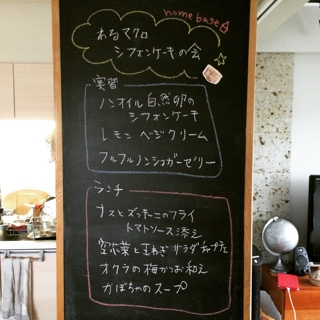 homebase
ゆるマクロ
シフォンケーキの会
実習
ノンオイル自然卵の
シフォンケーキ
レモン ベジクリーム
フルフルノンシュガーゼリー
ランチ
ナスとズッキーニのフライ
トマトソース添え
空芯菜と玉ねぎ サラダ
オクラの梅かつお和え
かぼちゃのスープ